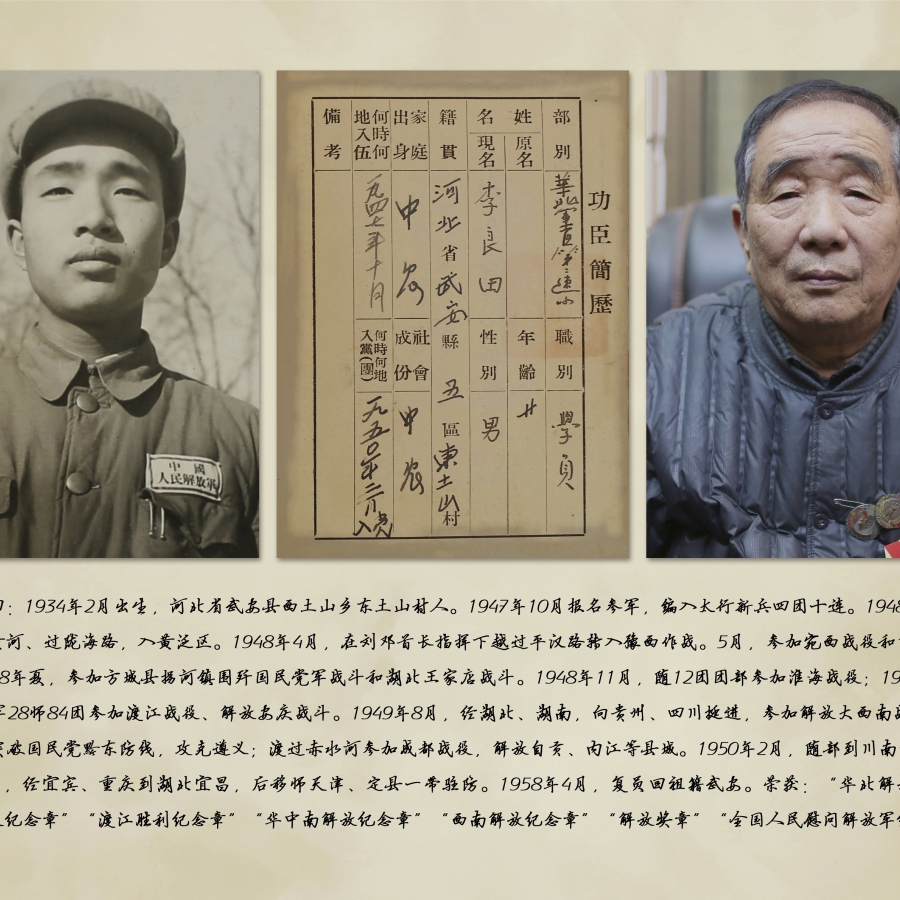 中國
人民解放軍
功臣簡歷
部別
華北軍直第三速小
職別 學員
姓名
原名
現名 李良田
年齡 廿
性別 男
籍貫 河北省武安縣五區東土山村
家庭出身 中農
社會成份 中農
何時何地入伍 一九四七年十月
何時何地入黨(團) 一九五〇年二月入党
備考
：1934年2月出生，河北省武安县西土山乡东土山村人。1947年10月报名参军，编入太行新兵四团十连。1948
河、过陇海路，入黄泛区。1948年4月，在刘邓首长指挥下越过平汉路转入豫西作战。5月，参加宛西战役和
8年夏，参加方城县拐河镇围歼国民党军战斗和湖北王家店战斗。1948年11月，随12团团部参加淮海战役；19
军28师84团参加渡江战役、解放安庆战斗。1949年8月，经湖北、湖南，向贵州、四川挺进，参加解放大西南战
突破国民党黔东防线，攻克遵义；渡过赤水河参加成都战役，解放自贡、内江等县城。1950年2月，随部到川南
，经宜宾、重庆到湖北宜昌，后移师天津、定县一带驻防。1958年4月，复员回祖籍武安。荣获：“华北解
纪念章”“渡江胜利纪念章”“华中南解放纪念章”“西南解放纪念章”“解放奖章”“全国人民慰问解放军